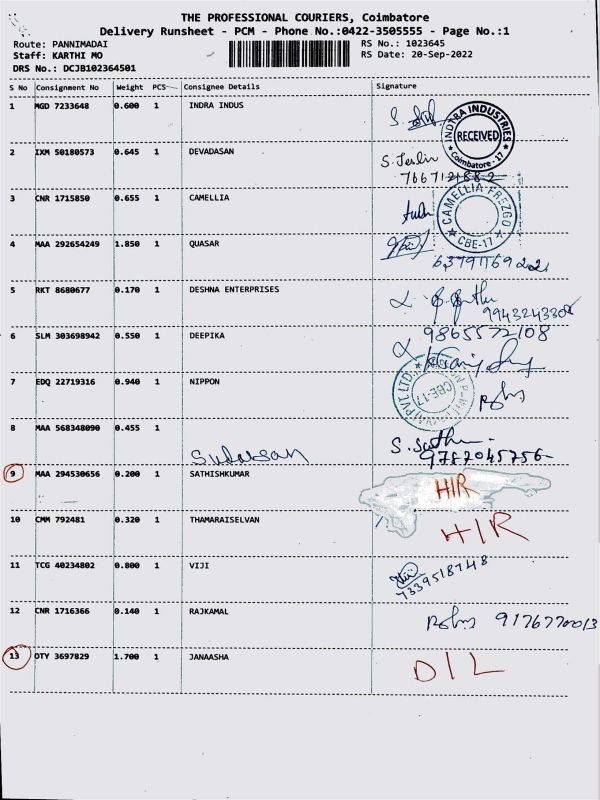 THE PROFESSIONAL COURIERS, Coimbatore
Delivery Runsheet - PCM - Phone No.:0422-3505555 - Page No.:1
Route: PANNIMADAI
RS No.: 1023645
Staff: KARTHI MO
RS Date: 20-Sep-2022
DRS No.: DCJB102364501
S No Consignment No Weight PCS Consignee Details Signature
1 MGD 7233648 0.600 1 INDRA INDUS
INDRA INDUSTRIES
RECEIVED
Coimbatore - 17
2 IXM 50180573 0.645 1 DEVADASAN S. Leslin
7667121882
3 CNR 1715850 0.655 1 CAMELLIA
CAMELLIA FREZGO
CBE-17
4 MAA 292654249 1.850 1 QUASAR
5 RKT 8680677 0.170 1 DESHNA ENTERPRISES
6 SLM 303698942 0.550 1 DEEPIKA 9865572108
7 EDQ 22719316 0.940 1 NIPPON
PVT LTD
CBE-17
8 MAA 568348090 0.455 1
Sudarsan
9787045756
9 MAA 294530656 0.200 1 SATHISHKUMAR HIR
10 CMM 792481 0.320 1 THAMARAISELVAN HIR
11 TCG 40234802 0.800 1 VIJI
7339518748
12 CNR 1716366 0.140 1 RAJKAMAL 9176770013
13 OTY 3697829 1.700 1 JANAASHA DIL